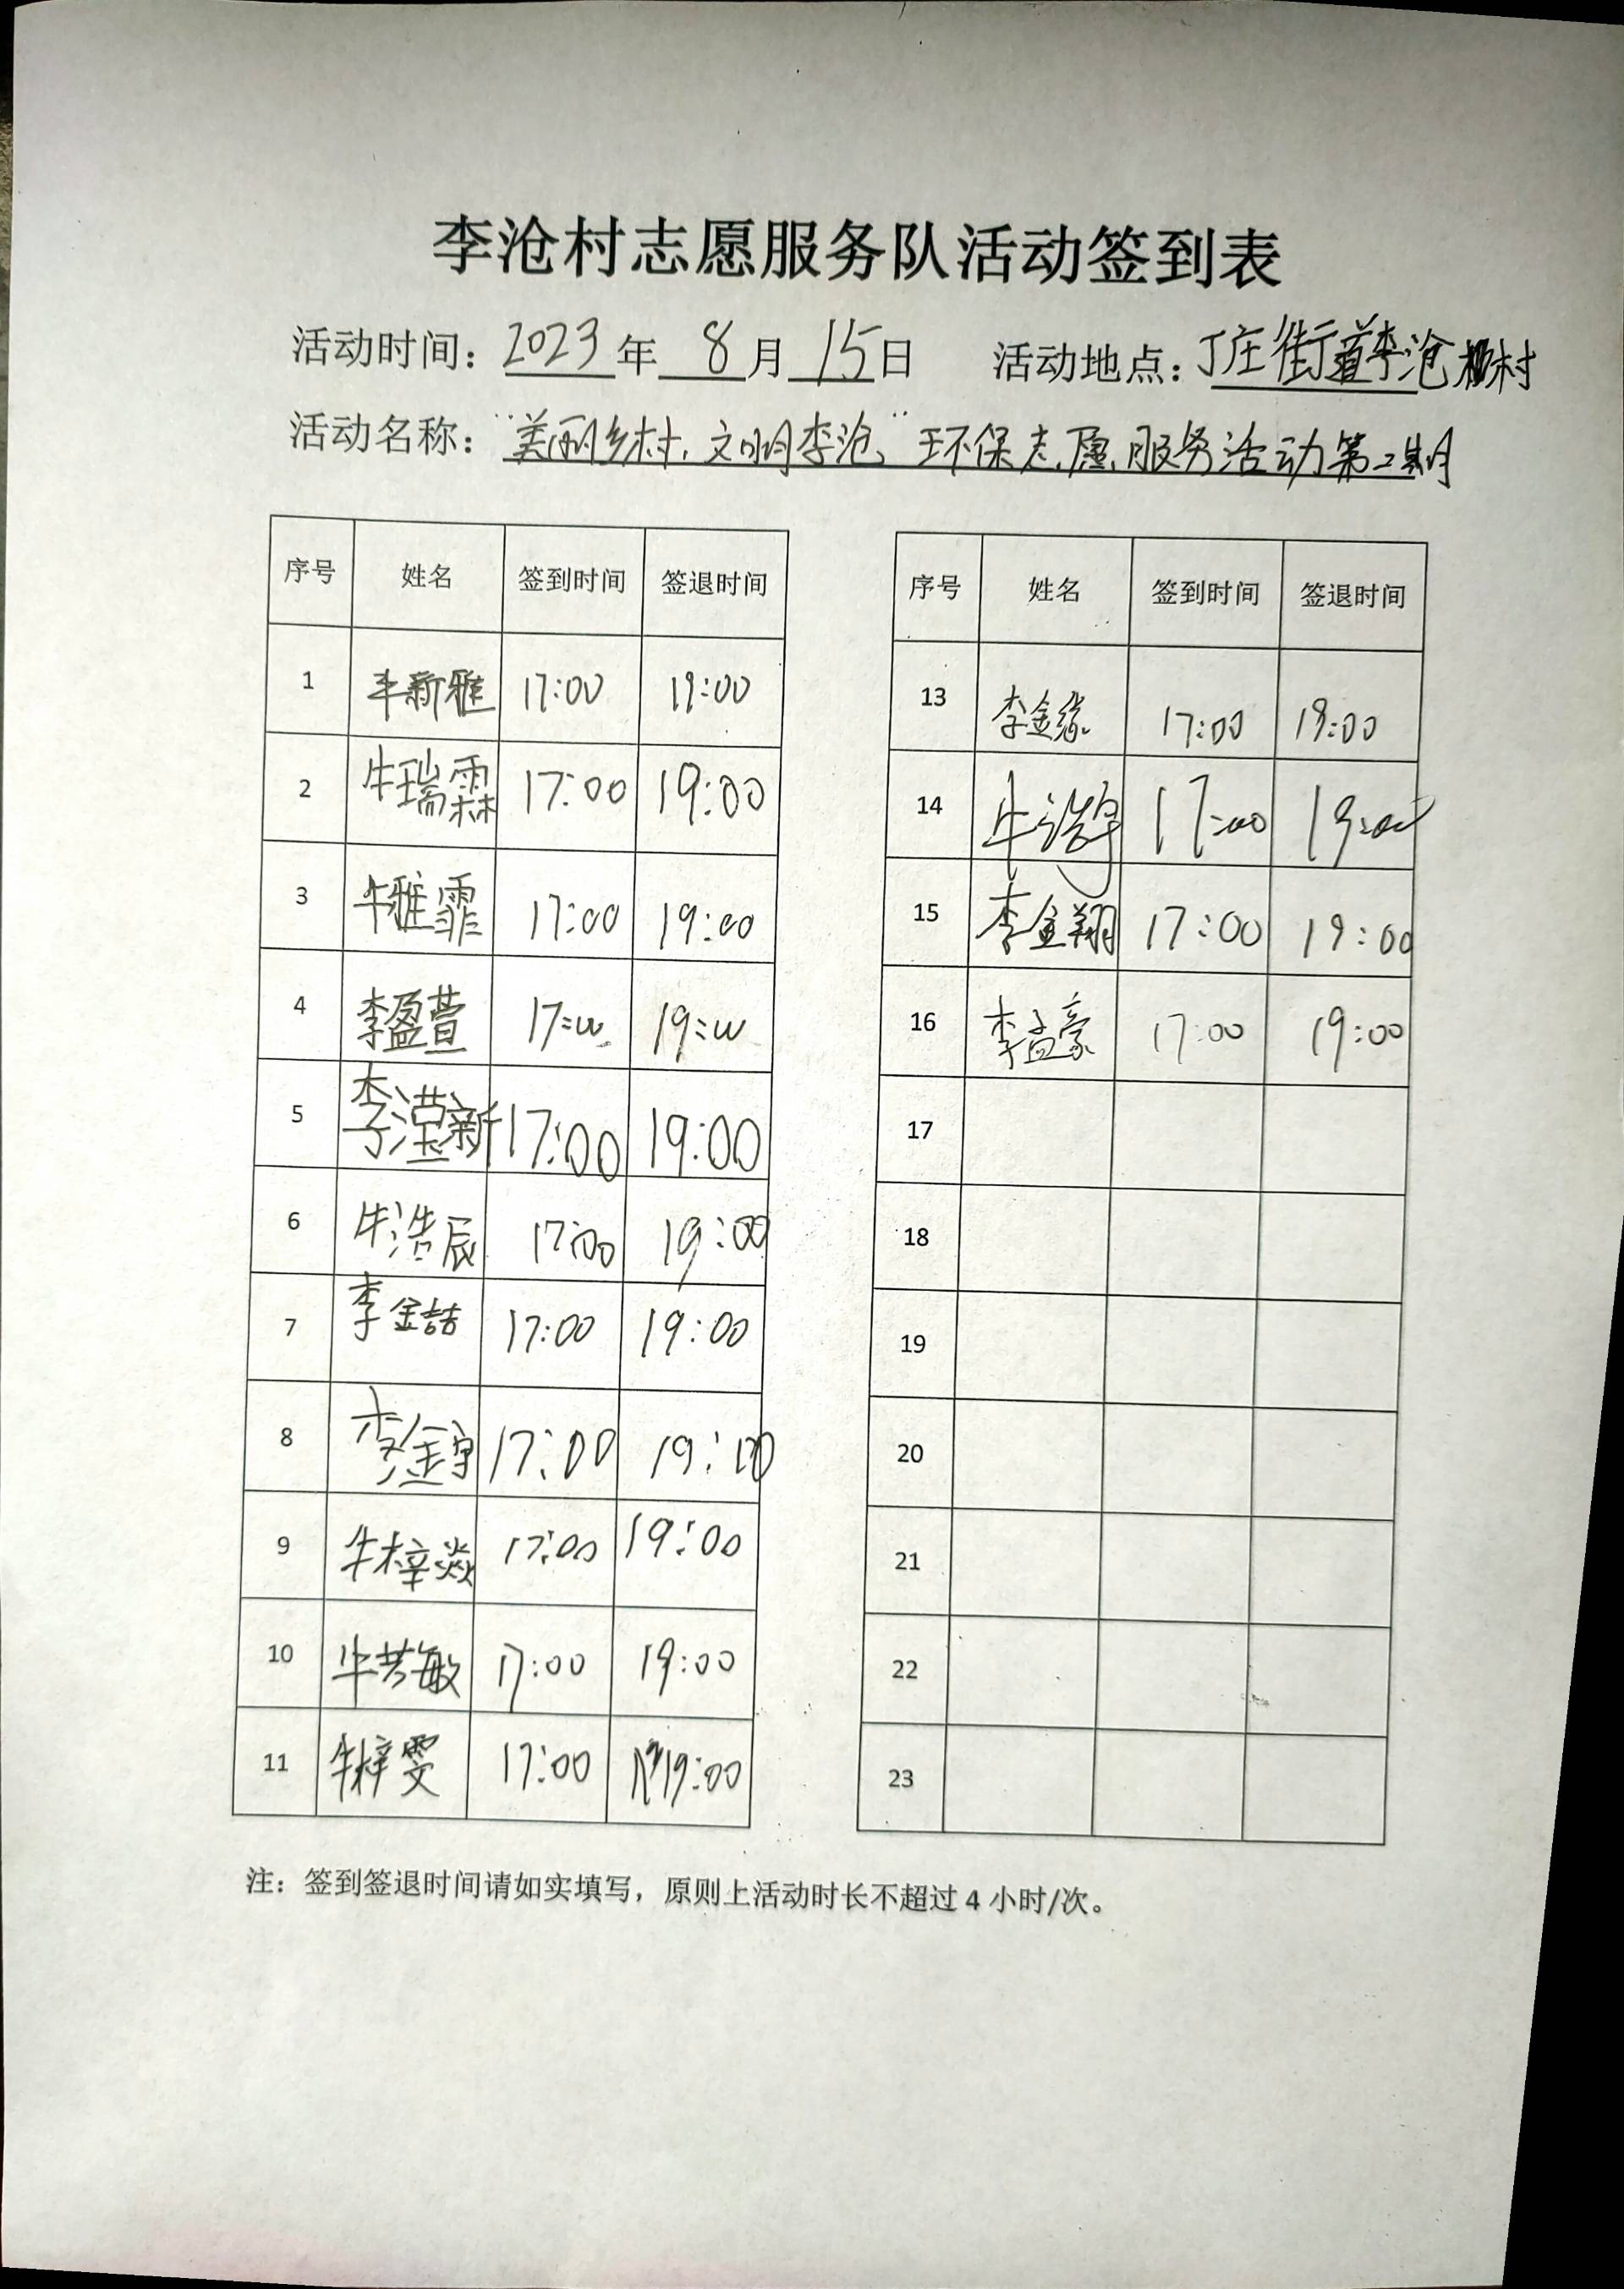 李沧村志愿服务队活动签到表
活动时间：2023年 8月 15日 活动地点：丁庄街道李沧村
活动名称：“美丽乡村，文明李沧”环保志愿服务活动第二期
序号 姓名 签到时间 签退时间
1 牛新雅 17:00 19:00
2 牛瑞霖 17:00 19:00
3 牛雅霏 17:00 19:00
4 李盈萱 17:00 19:00
5 李滢新 17:00 19:00
6 牛浩辰 17:00 19:00
7 李金喆 17:00 19:00
8 李金宇 17:00 19:00
9 牛梓焱 17:00 19:00
10 牛芸敏 17:00 19:00
11 牛梓雯 17:00 19:00
序号 姓名 签到时间 签退时间
13 李金缘 17:00 19:00
14 牛浩宇 17:00 19:00
15 李金翔 17:00 19:00
16 李孟豪 17:00 19:00
17
18
19
20
21
22
23
注：签到签退时间请如实填写，原则上活动时长不超过 4 小时/次。